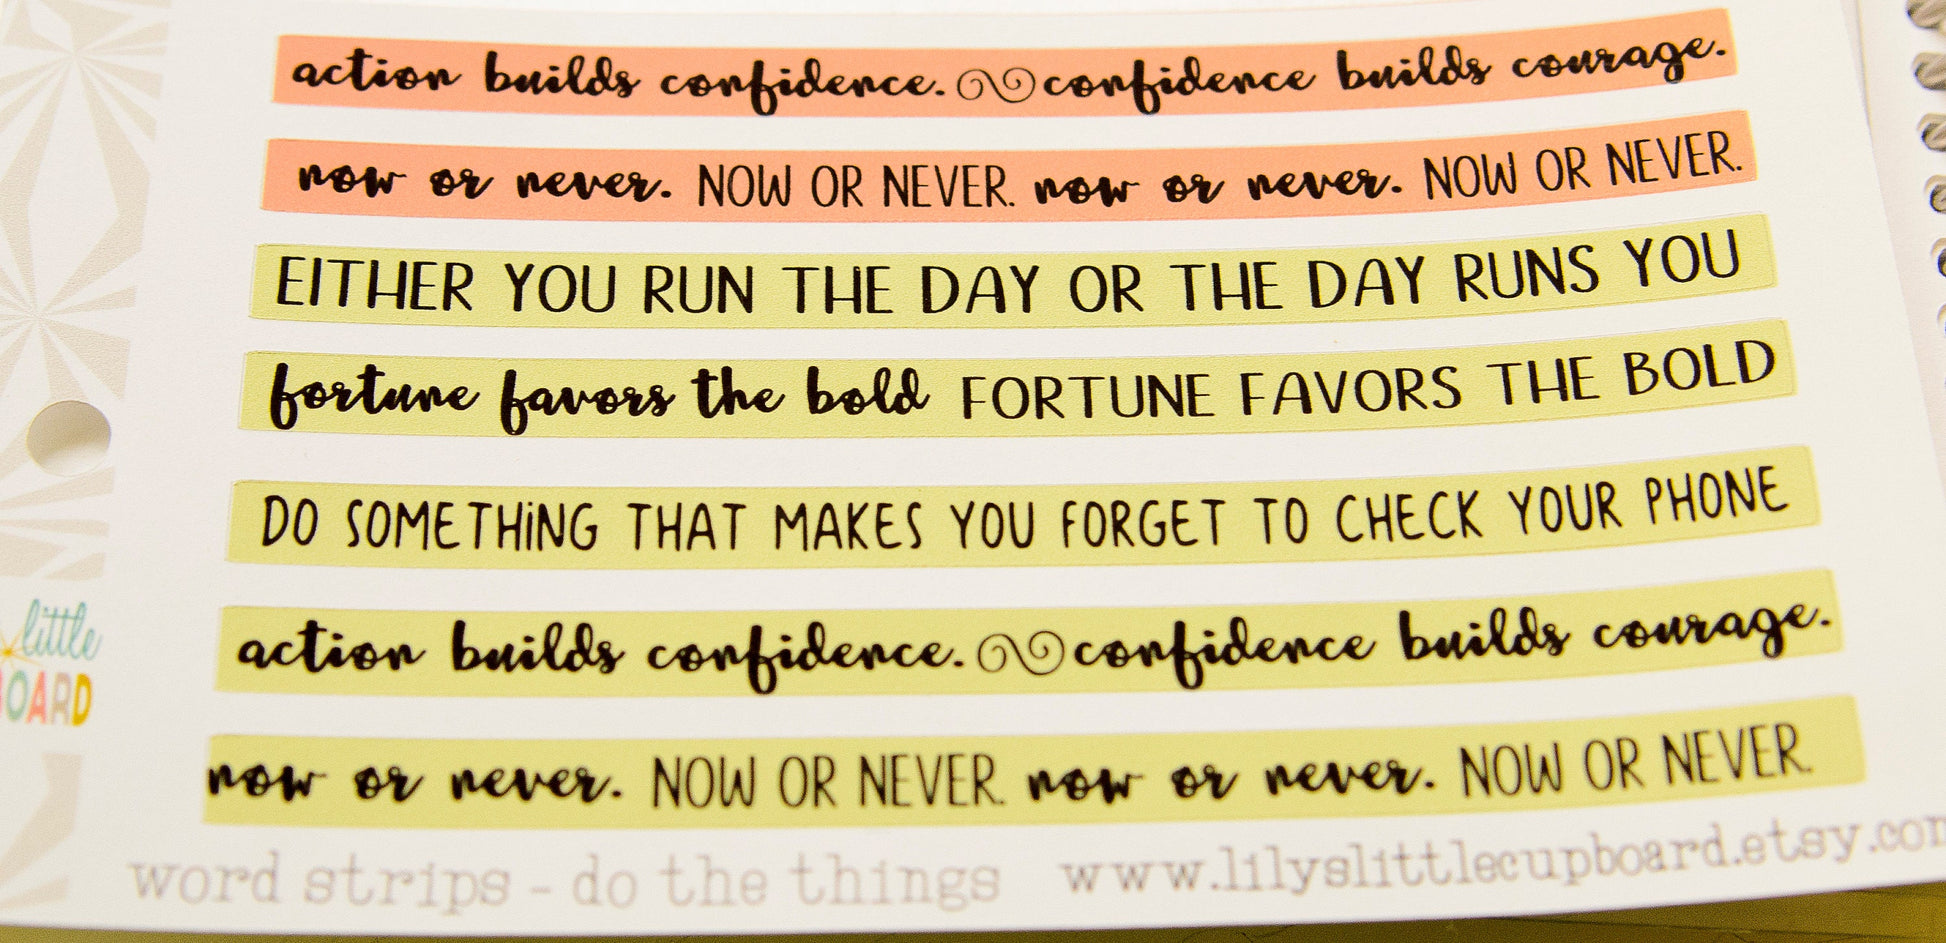 action builds confidence. confidence builds courage.
now or never. NOW OR NEVER. now or never. NOW OR NEVER.
EITHER YOU RUN THE DAY OR THE DAY RUNS YOU
fortune favors the bold FORTUNE FAVORS THE BOLD
DO SOMETHING THAT MAKES YOU FORGET TO CHECK YOUR PHONE
action builds confidence. confidence builds courage.
now or never. NOW OR NEVER. now or never. NOW OR NEVER.
little
OARD
word strips - do the things www.lilyslittlecupboard.etsy.com